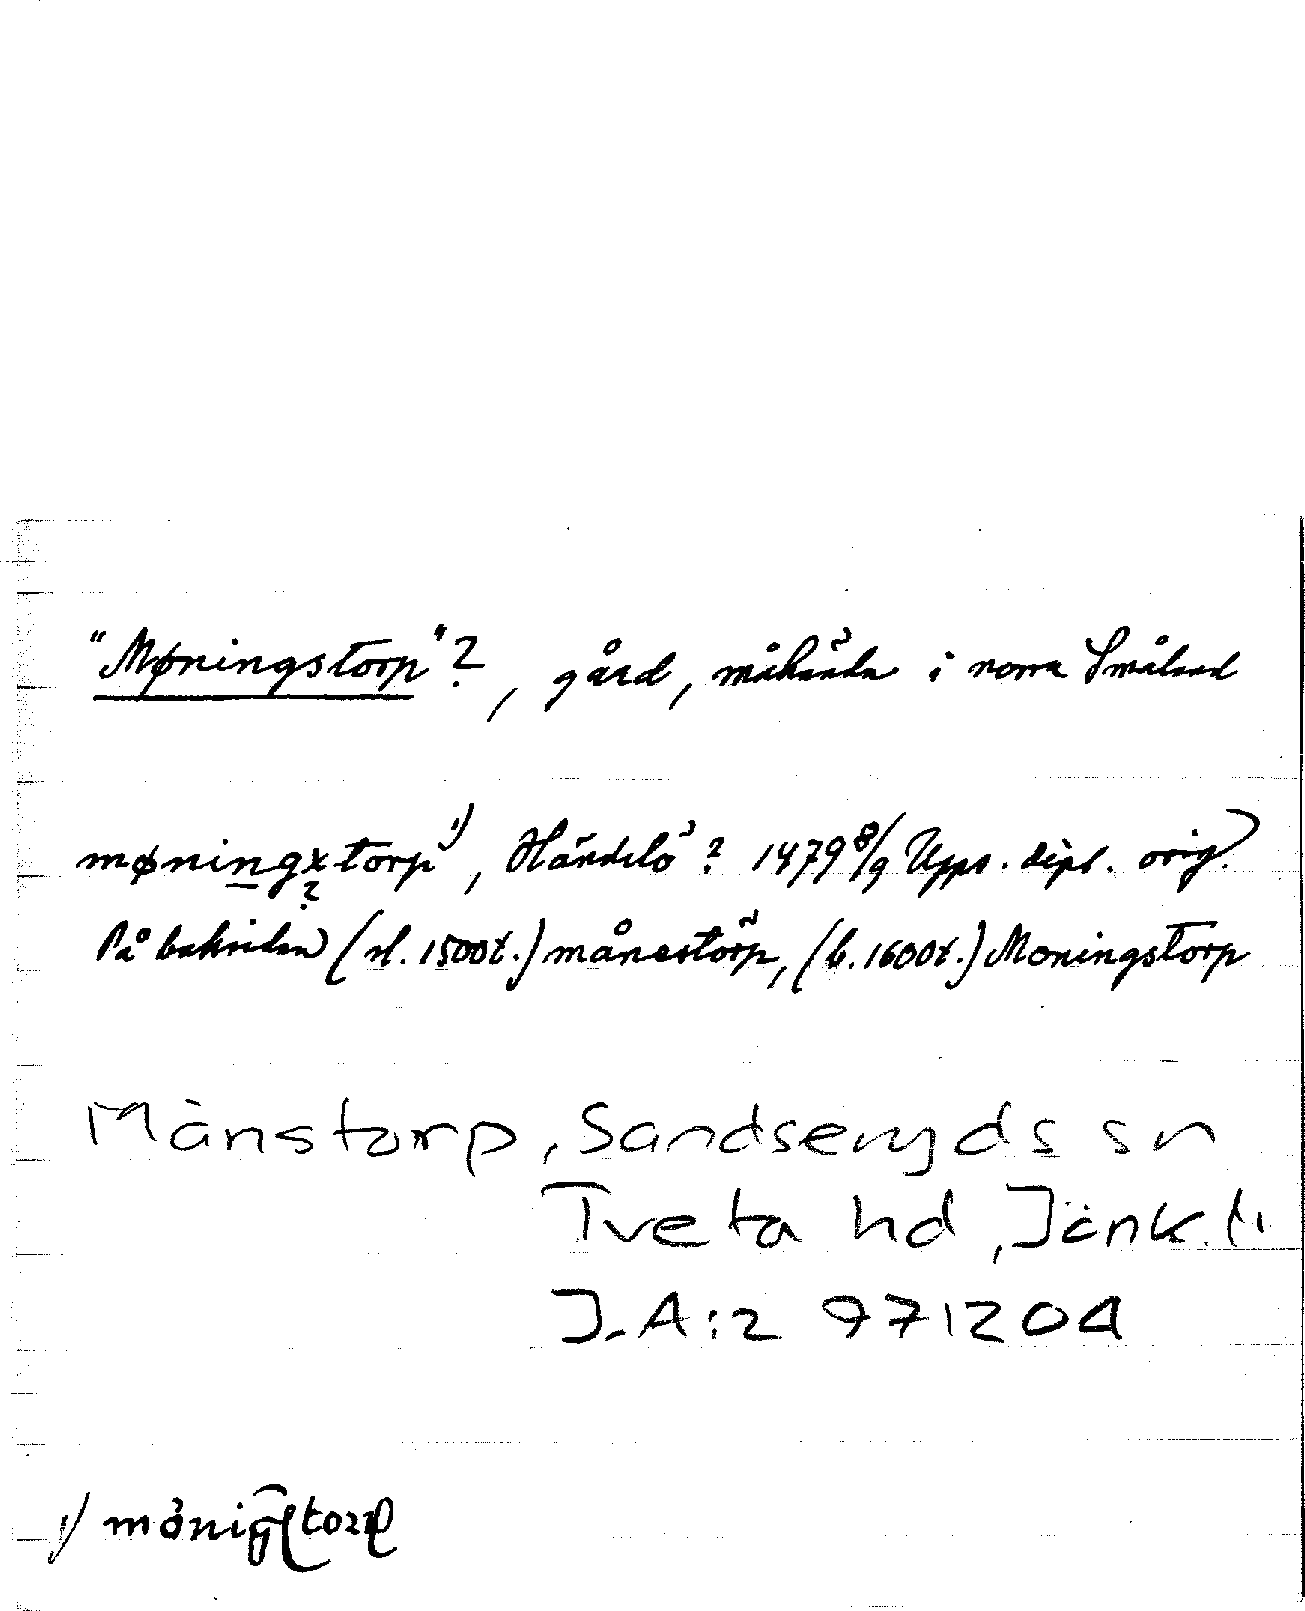 "Møningstorp"?, gård, måhända i norra Småland
møningxtorp 1), Händelö? 1479 8/9 Upps. dipl. orig.
?
På baksidan (sl. 1500t.) månestörp, (b. 1600t.) Moningstorp
Månstorp, Sandseryds sn
Tveta hd, Jönk. l.
J.A:2 971204
1)